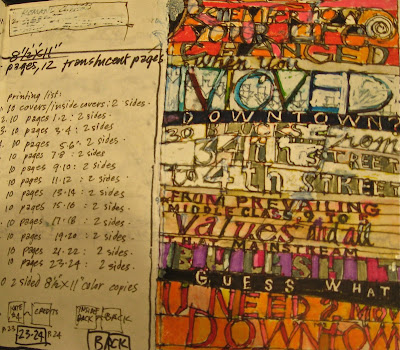 8½"x11"
pages, 12 translucent pages
Printing list:
10 covers/inside covers: 2 sides.
2. 10 pages 1-2: 2 sides
3. 10 pages 3-4: 2 sides
10 pages 5-6: 2 sides.
10 pages 7-8: 2 sides
10 pages 9-10: 2 sides
10 pages 11-12: 2 sides
10 pages 13-14: 2 sides
10 pages 15-16: 2 sides
10 pages 17-18: 2 sides
10 pages 19-20: 2 sides
10 pages 21-22: 2 sides
10 pages 23-24: 2 sides.
2 sided 8½x11 color copies
CREDITS
BACK
BACK
23-24
P.24
BACK
CHANGED
when you
MOVED
DOWNTOWN?
30 BLOCKS from
34th STREET
TO 4th STREET
FROM PREVAILING
MIDDLE CLASS, 9 TO 5
values and all
THAT MAINSTREAM
BULLSHIT
GUESS WHAT
U NEED 2 MOV
DOWNTOW